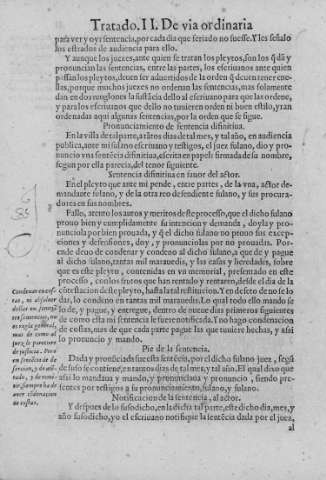 Tratado. II. De via ordinaria
para ver y oyr sentencia, por cada dia que feriado no fuesse. Y les señalo
los estrados de audiencia para ello.
Y aunque los juezes, ante quien se tratan los pleytos, son los q̃ dã y
pronuncian las sentencias, entre las partes, los escriuanos ante quien
passan los pleytos, deuen ser aduertidos de la orden q̃ deuen tener en e-
llas, porque muchos juezes no ordenan las sentencias, mas solamente
dan en dos renglones la sustãcia dello al escriuano para que las ordene,
y para los escriuanos que dello no tuuieren orden ni buen estilo, yran
ordenadas aqui algunas sentencias, por la orden que se sigue.
Pronunciamiento de sentencia difinitiua.
En la villa de tal parte, a tantos dias de tal mes, y tal año, en audiencia
publica, ante mi fulano escriuano y testigos, el juez fulano, dio y pro-
nuncio vna sentẽcia difinitiua, escrita en papel firmada de su nombre,
segun por ella parecia, del tenor siguiente.
Sentencia difinitiua en fauor del actor.
En el pleyto que ante mi pende, entre partes, de la vna, actor de-
mandante fulano, y de la otra reo defendiente fulano, y sus procura-
dores en sus nombres.
Fallo, atento los autos y meritos deste processo, que el dicho fulano
prouo bien y cumplidamente su intencion y demanda, doyla y pro-
nunciola por bien prouada, y q̃ el dicho fulano no prouo sus excep-
ciones y defensiones, doy, y pronunciolas por no prouadas. Por-
ende deuo de condenar y condeno al dicho fulano, a que de y pague
al dicho fulano, tantas mil marauedis, y las casas y heredades, sobre
que es este pleyto, contenidas en vn memorial, presentado en este
processo, con los frutos que han rentado y rentaren, desde el dia de la
contestacion deste pleyto, hasta la tal restitucion. Y en defeto de no se lo
dar, lo condeno en tantas mil marauedis. Lo qual todo ello mando se
lo de, y pague, y entregue, dentro de nueue dias primeros siguientes
de como esta mi sentencia le fuere notificada. Y no hago condenacion
de costas, mas de que cada parte pague las que tuuiere hechas, y assi
lo pronuncio y mando.
Condenar en cos-
tas,
regla general,
juez le pareciere
de justicia.
Pie de la sentencia.
Dada y pronũciada fue esta sentẽcia, por el dicho fulano juez, segũ
de suso se contiene, en tantos dias de tal mes, y tal año. El qual dixo que
assi lo mandaua y mando, y pronunciaua y pronuncio, siendo pre-
sentes por testigos a su pronunciamiento, fulano, y fulano.
Notificacion de la sentencia, al actor.
Y despues de lo susodicho, en la dicha tal parte, este dicho dia, mes, y
año susodicho, yo el escriuano notifique la sentẽcia dada por el juez,
al